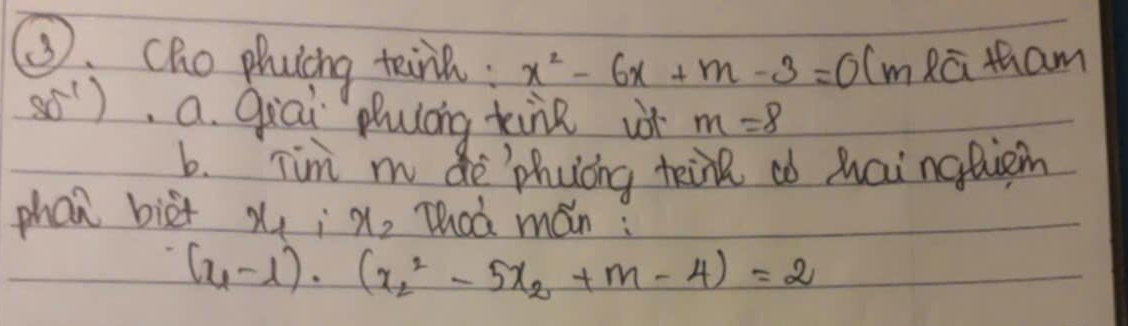 ③. Cho phương trình: x² - 6x + m - 3 = 0 (m là tham
số) . a. Giải phương trình với m = 8
b. Tìm m để phương trình có hai nghiệm
phân biệt x₁ ; x₂ Thoả mãn :
(x₁ - 1) . (x₂² - 5x₂ + m - 4) = 2